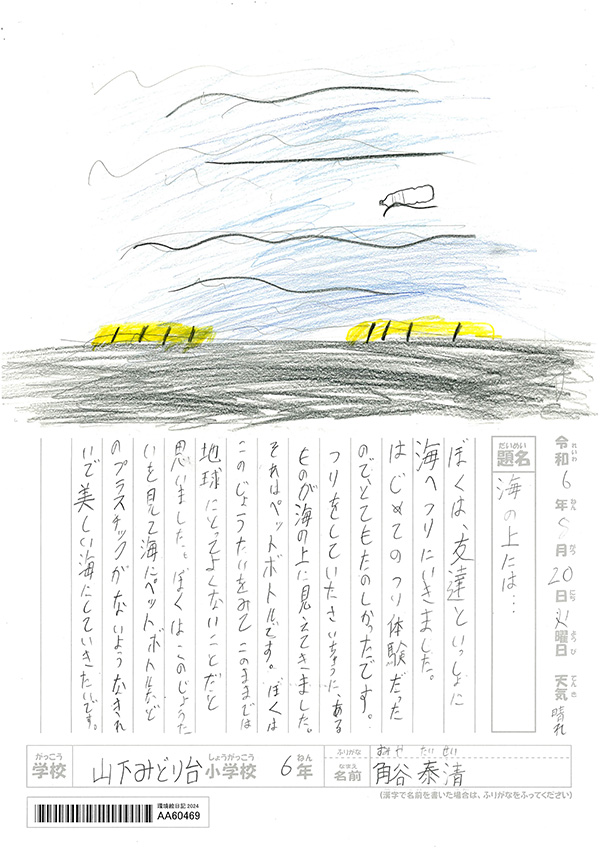 令和6年8月20日火曜日 天気 晴れ
れいわ ねん がつ にち ようび てんき
だいめい
題名 海の上には…
ぼくは、友達といっしょに
海へつりにいきました。
はじめてのつり体験だった
のでとてもたのしかったです。
つりをしていたさいちゅうに、ある
ものが海の上に見えてきました。
それはペットボトルです。ぼくは
このじょうたいをみてこのままでは
地球にとってよくないことだと
思いました。ぼくはこのじょうた
いを見て海にペットボトルなど
のプラスチックがないようなきれ
いで美しい海にしていきたいです。
がっこう しょうがっこう ねん
学校 山下みどり台小学校 6年
ふりがな すみや たいせい
なまえ
名前 角谷泰清
(漢字で名前を書いた場合は、ふりがなをふってください)
環境絵日記 2024
AA60469